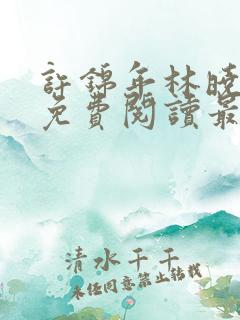 許錦年林曉
免費閱讀最
清水千千
未经同意禁止转载